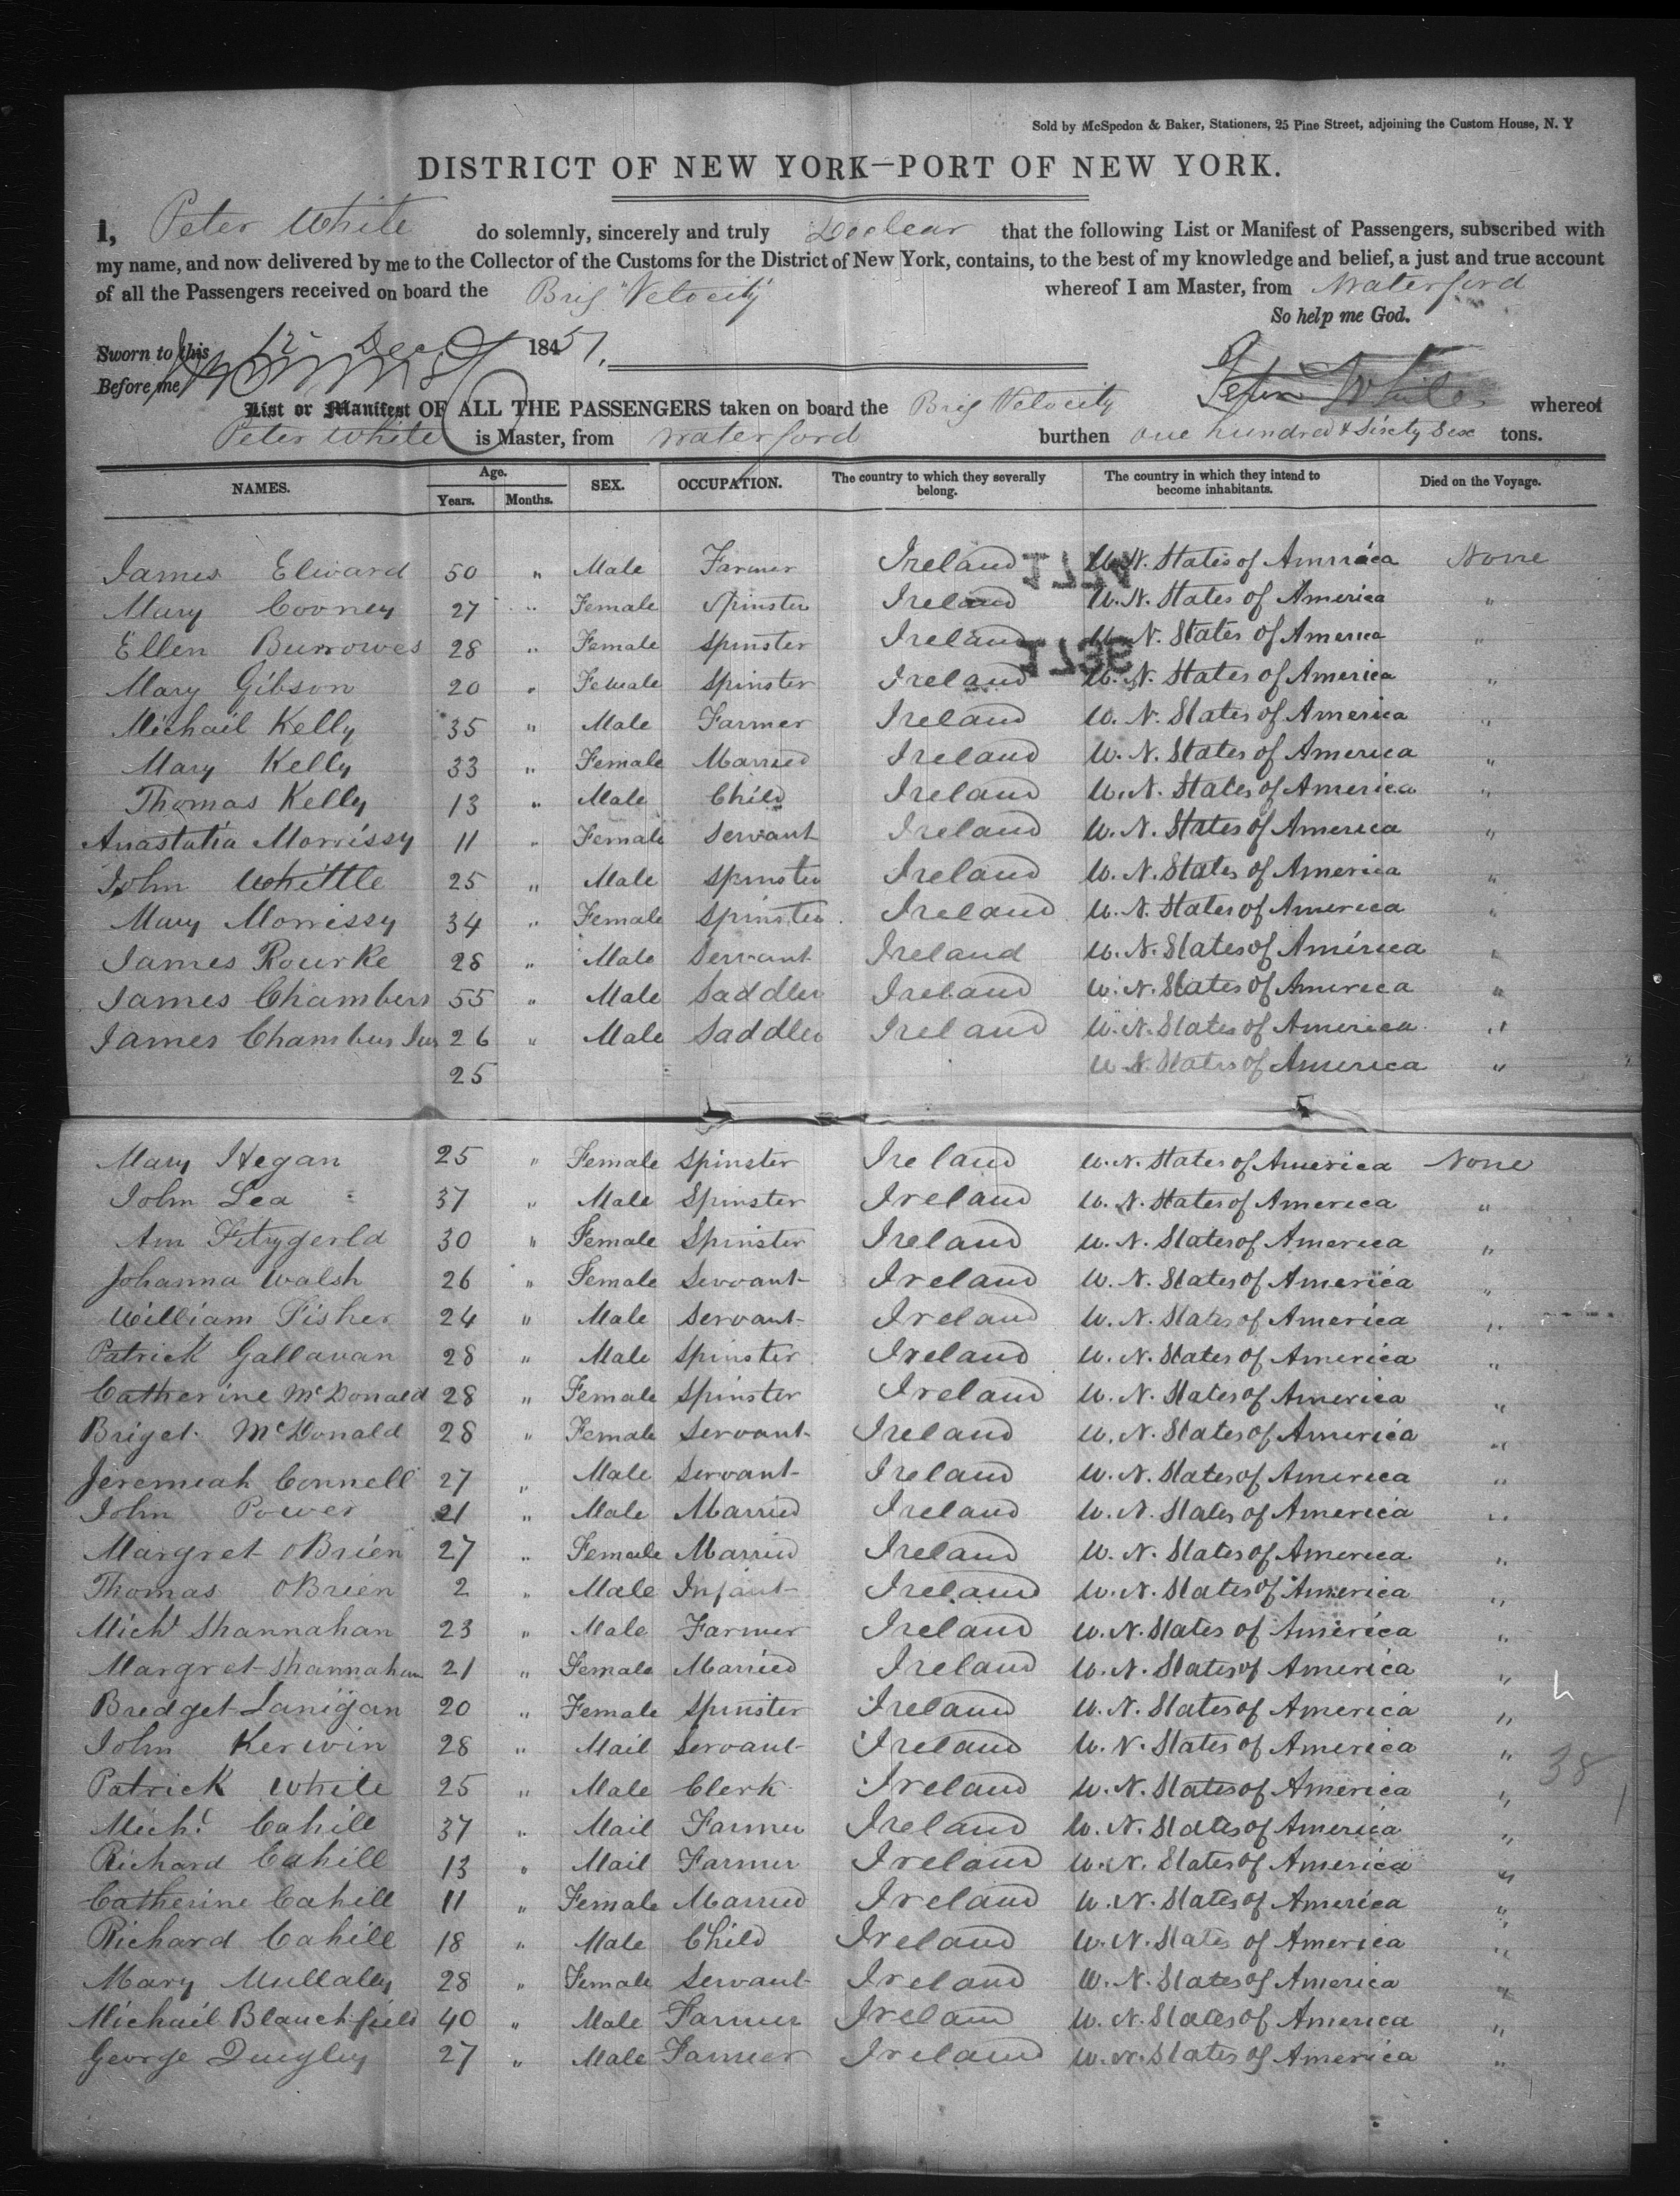 Sold by McSpedon & Baker, Stationers, 25 Pine Street, adjoining the Custom House, N. Y
DISTRICT OF NEW YORK—PORT OF NEW YORK.
I, Peter White do solemnly, sincerely and truly Declear that the following List or Manifest of Passengers, subscribed with
my name, and now delivered by me to the Collector of the Customs for the District of New York, contains, to the best of my knowledge and belief, a just and true account
of all the Passengers received on board the Brig "Velocity" whereof I am Master, from Waterford
So help me God.
Sworn to this 12 Dec 1851.
Before me
Peter White
List or Manifest OF ALL THE PASSENGERS taken on board the Brig Velocity whereof
Peter White is Master, from Waterford burthen one hundred & Sixty Sex tons.
NAMES. Age. Years. Months. SEX. OCCUPATION. The country to which they severally belong. The country in which they intend to become inhabitants. Died on the Voyage.
James Elward 50 " Male Farmer Ireland U.N. States of America None
Mary Cooney 27 " Female Spinster Ireland U.N. States of America "
Ellen Burrowes 28 " Female Spinster Ireland U.N. States of America "
Mary Gibson 20 " Female Spinster Ireland U.N. States of America "
Michail Kelly 35 " Male Farmer Ireland U.N. States of America "
Mary Kelly 33 " Female Married Ireland U.N. States of America "
Thomas Kelly 13 " Male Child Ireland U.N. States of America "
Anastatia Morrissy 11 " Female Servant Ireland U.N. States of America "
John Whittle 25 " Male Spinster Ireland U.N. States of America "
Mary Morrissy 34 " Female Spinster Ireland U.N. States of America "
James Rourke 28 " Male Servant Ireland U.N. States of America "
James Chambers 55 " Male Saddler Ireland U.N. States of America "
James Chambers Jur 26 " Male Saddler Ireland U.N. States of America "
25 U.N. States of America "
Mary Hegan 25 " Female Spinster Ireland U.N. States of America None
John Lea 37 " Male Spinster Ireland U.N. States of America "
Ann Fitzgerld 30 " Female Spinster Ireland U.N. States of America "
Johanna Walsh 26 " Female Servant Ireland U.N. States of America "
William Fisher 24 " Male Servant Ireland U.N. States of America "
Patrick Gallavan 28 " Male Spinster Ireland U.N. States of America "
Catherine McDonald 28 " Female Spinster Ireland U.N. States of America "
Briget McDonald 28 " Female Servant Ireland U.N. States of America "
Jeremiah Connell 27 " Male Servant Ireland U.N. States of America "
John Power 21 " Male Married Ireland U.N. States of America "
Margret OBrien 27 " Female Married Ireland U.N. States of America "
Thomas OBrien 2 " Male Infant Ireland U.N. States of America "
Michl Shannahan 23 " Male Farmer Ireland U.N. States of America "
Margret Shannahan 21 " Female Married Ireland U.N. States of America "
Bredget Lanigan 20 " Female Spinster Ireland U.N. States of America "
John Kerwin 28 " Mail Servant Ireland U.N. States of America "
38
Patrick White 25 " Male Clerk Ireland U.N. States of America "
Michl Cahill 37 " Mail Farmer Ireland U.N. States of America "
Richard Cahill 13 " Mail Farmer Ireland U.N. States of America "
Catherine Cahill 11 " Female Married Ireland U.N. States of America "
Richard Cahill 18 " Male Child Ireland U.N. States of America "
Mary Mullally 28 " Female Servant Ireland U.N. States of America "
Michail Blanchfield 40 " Male Farmer Ireland U.N. States of America "
George Quigley 27 " Male Farmer Ireland U.N. States of America "